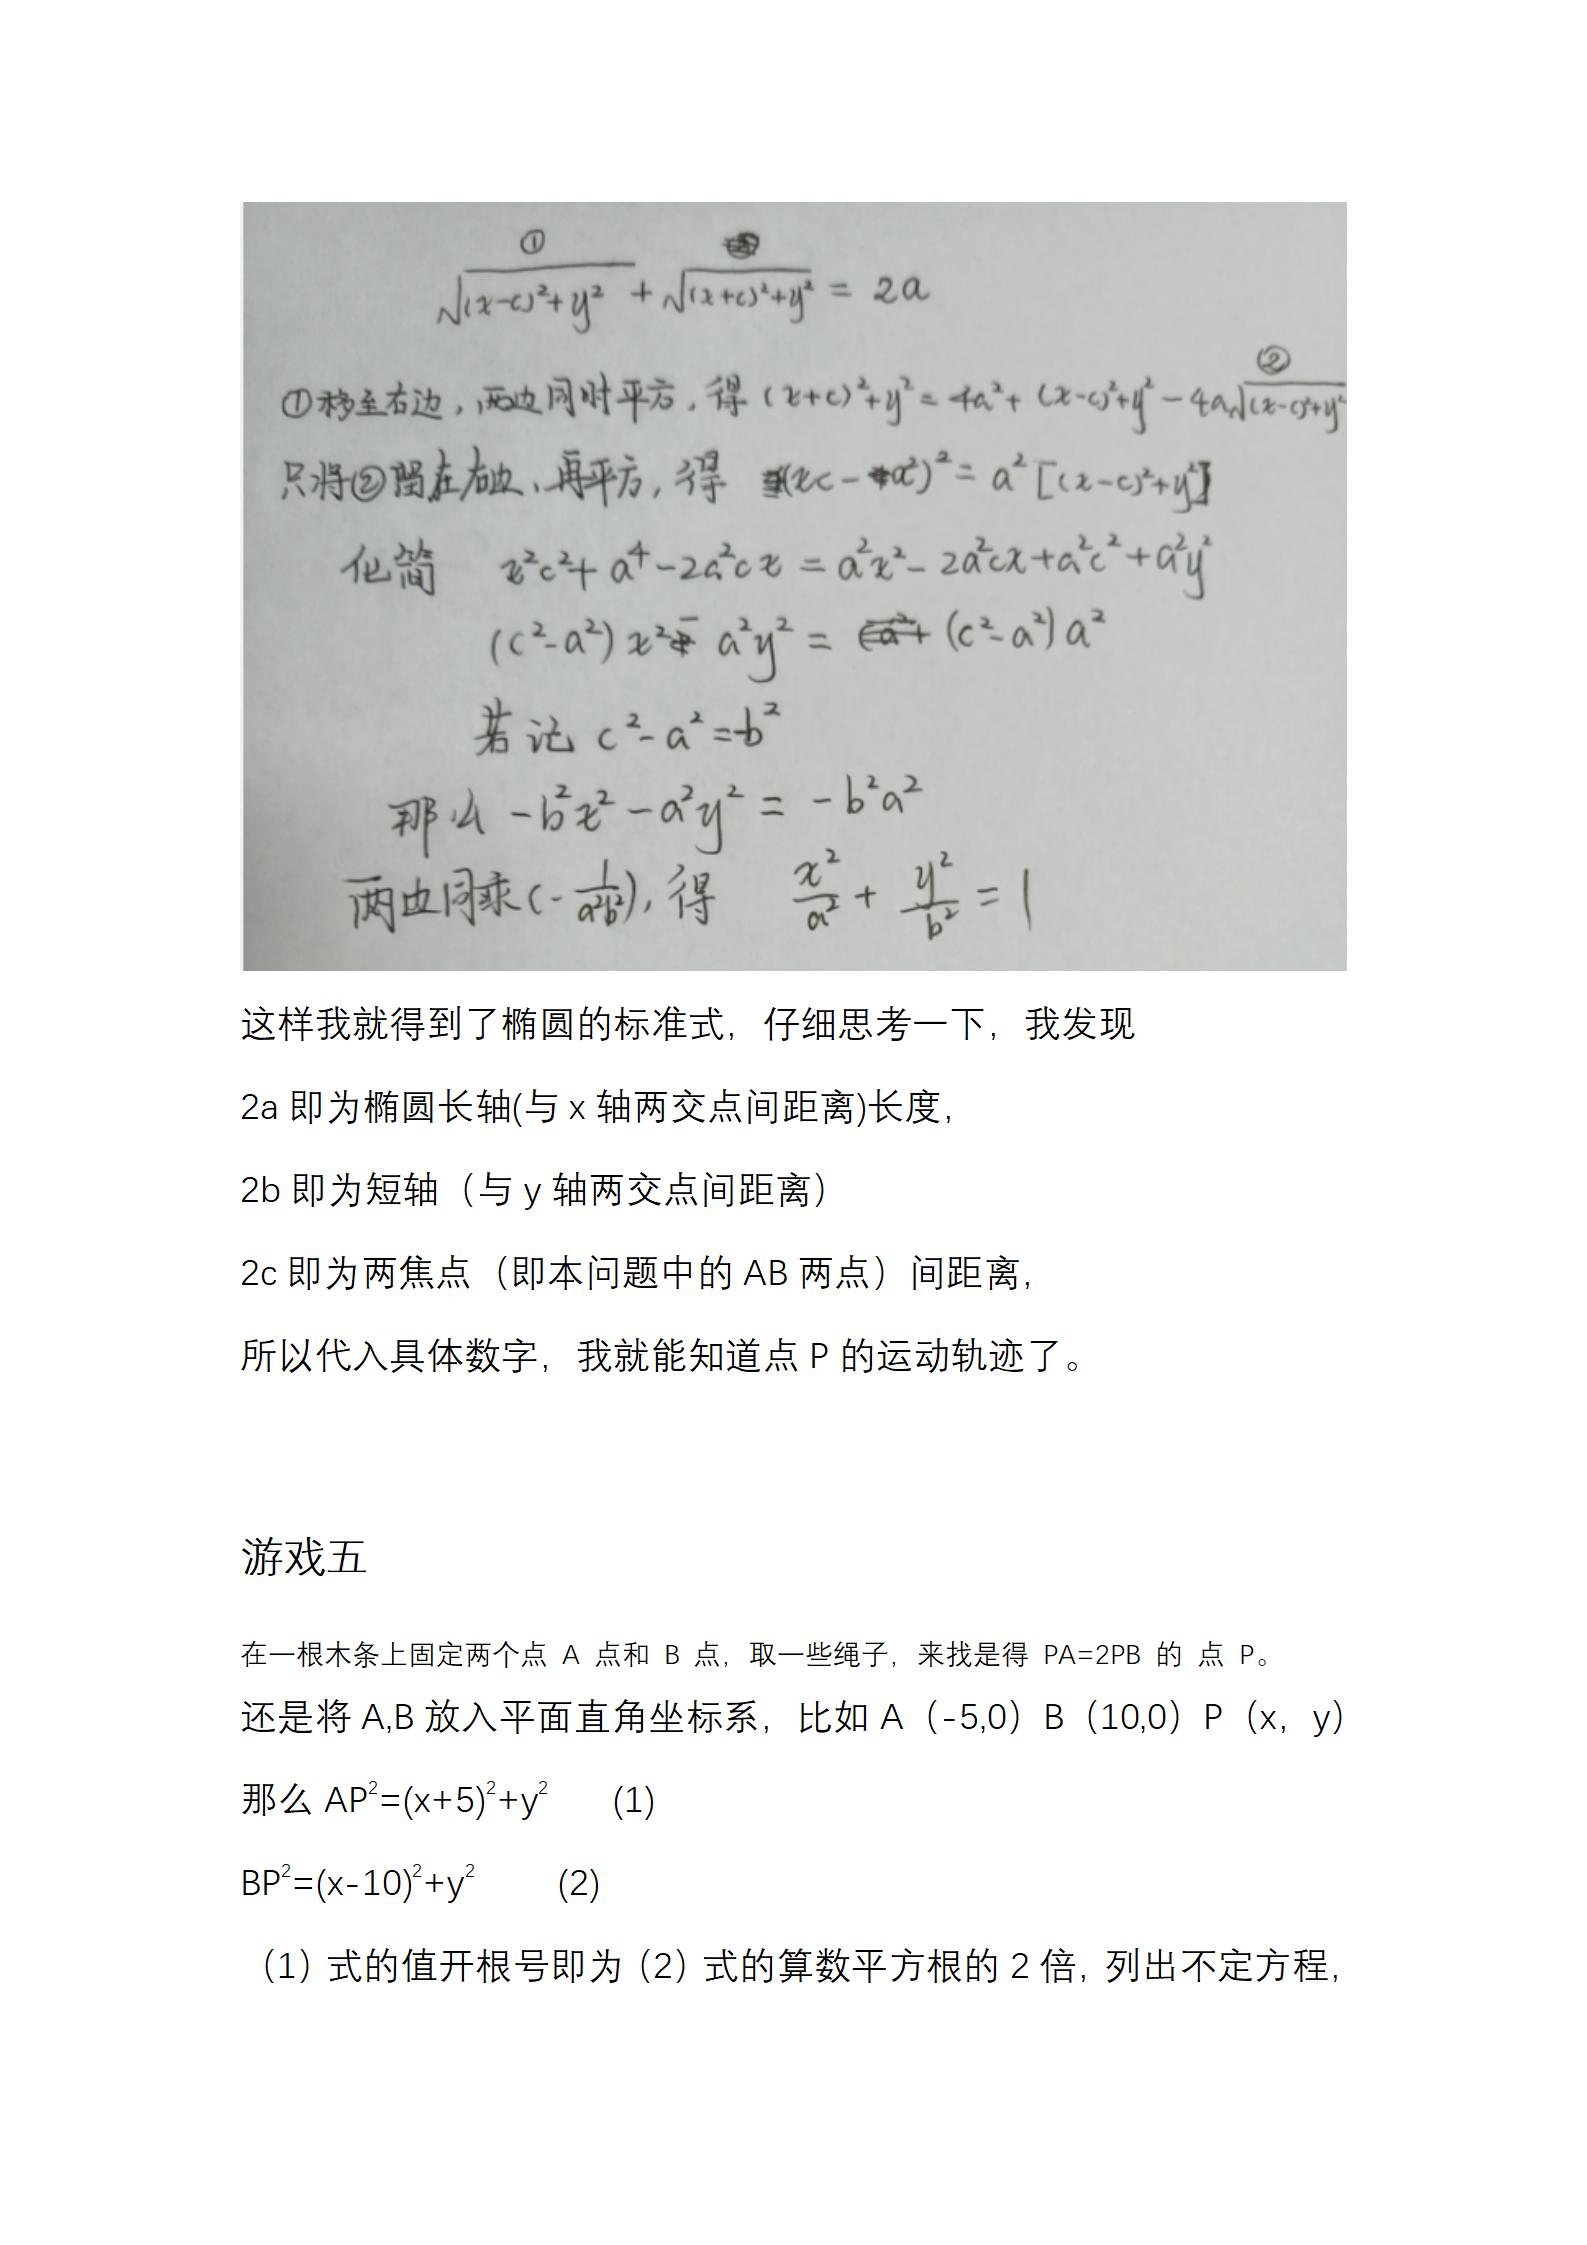 ①
√(x-c)²+y² + √(x+c)²+y² = 2a
②
①移至右边，两边同时平方，得 (x+c)²+y²=4a²+(x-c)²+y²-4a√(x-c)²+y²
只将②留在右边、再平方，得 (xc-a²)²=a²[(x-c)²+y²]
化简 x²c²+a⁴-2a²cx=a²x²-2a²cx+a²c²+a²y²
(c²-a²)x²-a²y²=(c²-a²)a²
若记 c²-a²=-b²
那么 -b²x²-a²y²=-b²a²
两边同乘(-1/a²b²)，得 x²/a²+y²/b²=1
这样我就得到了椭圆的标准式，仔细思考一下，我发现
2a 即为椭圆长轴(与 x 轴两交点间距离)长度，
2b 即为短轴（与 y 轴两交点间距离）
2c 即为两焦点（即本问题中的 AB 两点）间距离，
所以代入具体数字，我就能知道点 P 的运动轨迹了。
游戏五
在一根木条上固定两个点 A 点和 B 点，取一些绳子，来找是得 PA=2PB 的 点 P。
还是将 A,B 放入平面直角坐标系，比如 A（-5,0）B（10,0）P（x，y）
那么 AP²=(x+5)²+y² (1)
BP²=(x-10)²+y² (2)
（1）式的值开根号即为（2）式的算数平方根的 2 倍，列出不定方程，